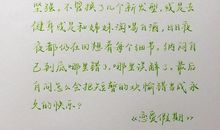 坚强，不管换了几个新发型，或是去
健身或是和姊妹淘喝白酒，日日夜
夜都仍在回想着每个细节，纳闷自
己到底哪里错，哪里误解了。最后
自问怎么会把短暂的欢愉错当成永
久的快乐？
《恋爱假期》